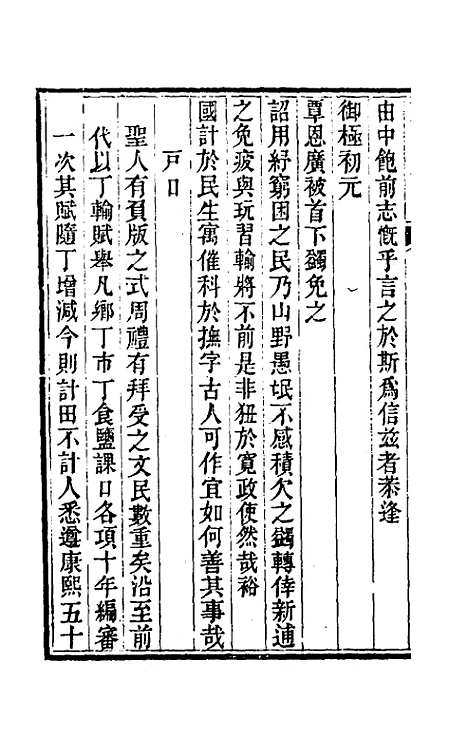 由中飽前志慨乎言之於斯爲信兹者恭逢
御極初元
覃恩廣被首下蠲免之
詔用紓窮困之民乃山野愚氓不感積欠之蠲轉倖新逋
之免疲與玩習輸將不前是非狃於寬政使然哉裕
國計於民生寓催科於撫字古人可作宜如何善其事哉
戸口
聖人有頁版之式周禮有拜受之文民數重矣沿至前
代以丁輸賦舉凡鄉丁市丁食鹽課口各項十年編審
一次其賦隨丁增減今則計田不計人悉遵康熙五十